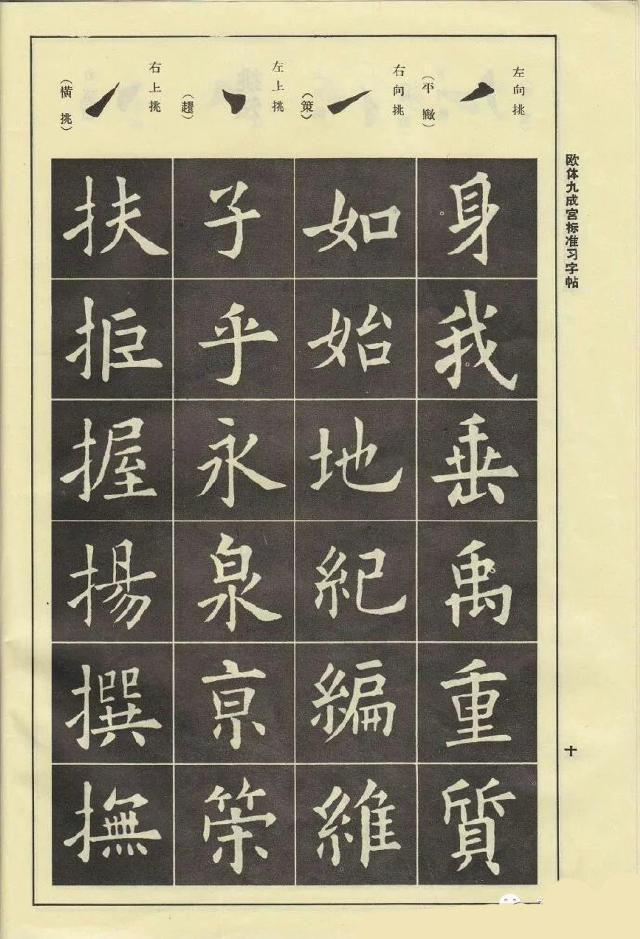 欧体九成宫标准习字帖
十
左向挑
(平撇)
身我垂禹重質
右向挑
(策)
如始地紀編維
左上挑
(趯)
子乎永泉亰策
右上挑
(橫挑)
扶拒握揚撰撫